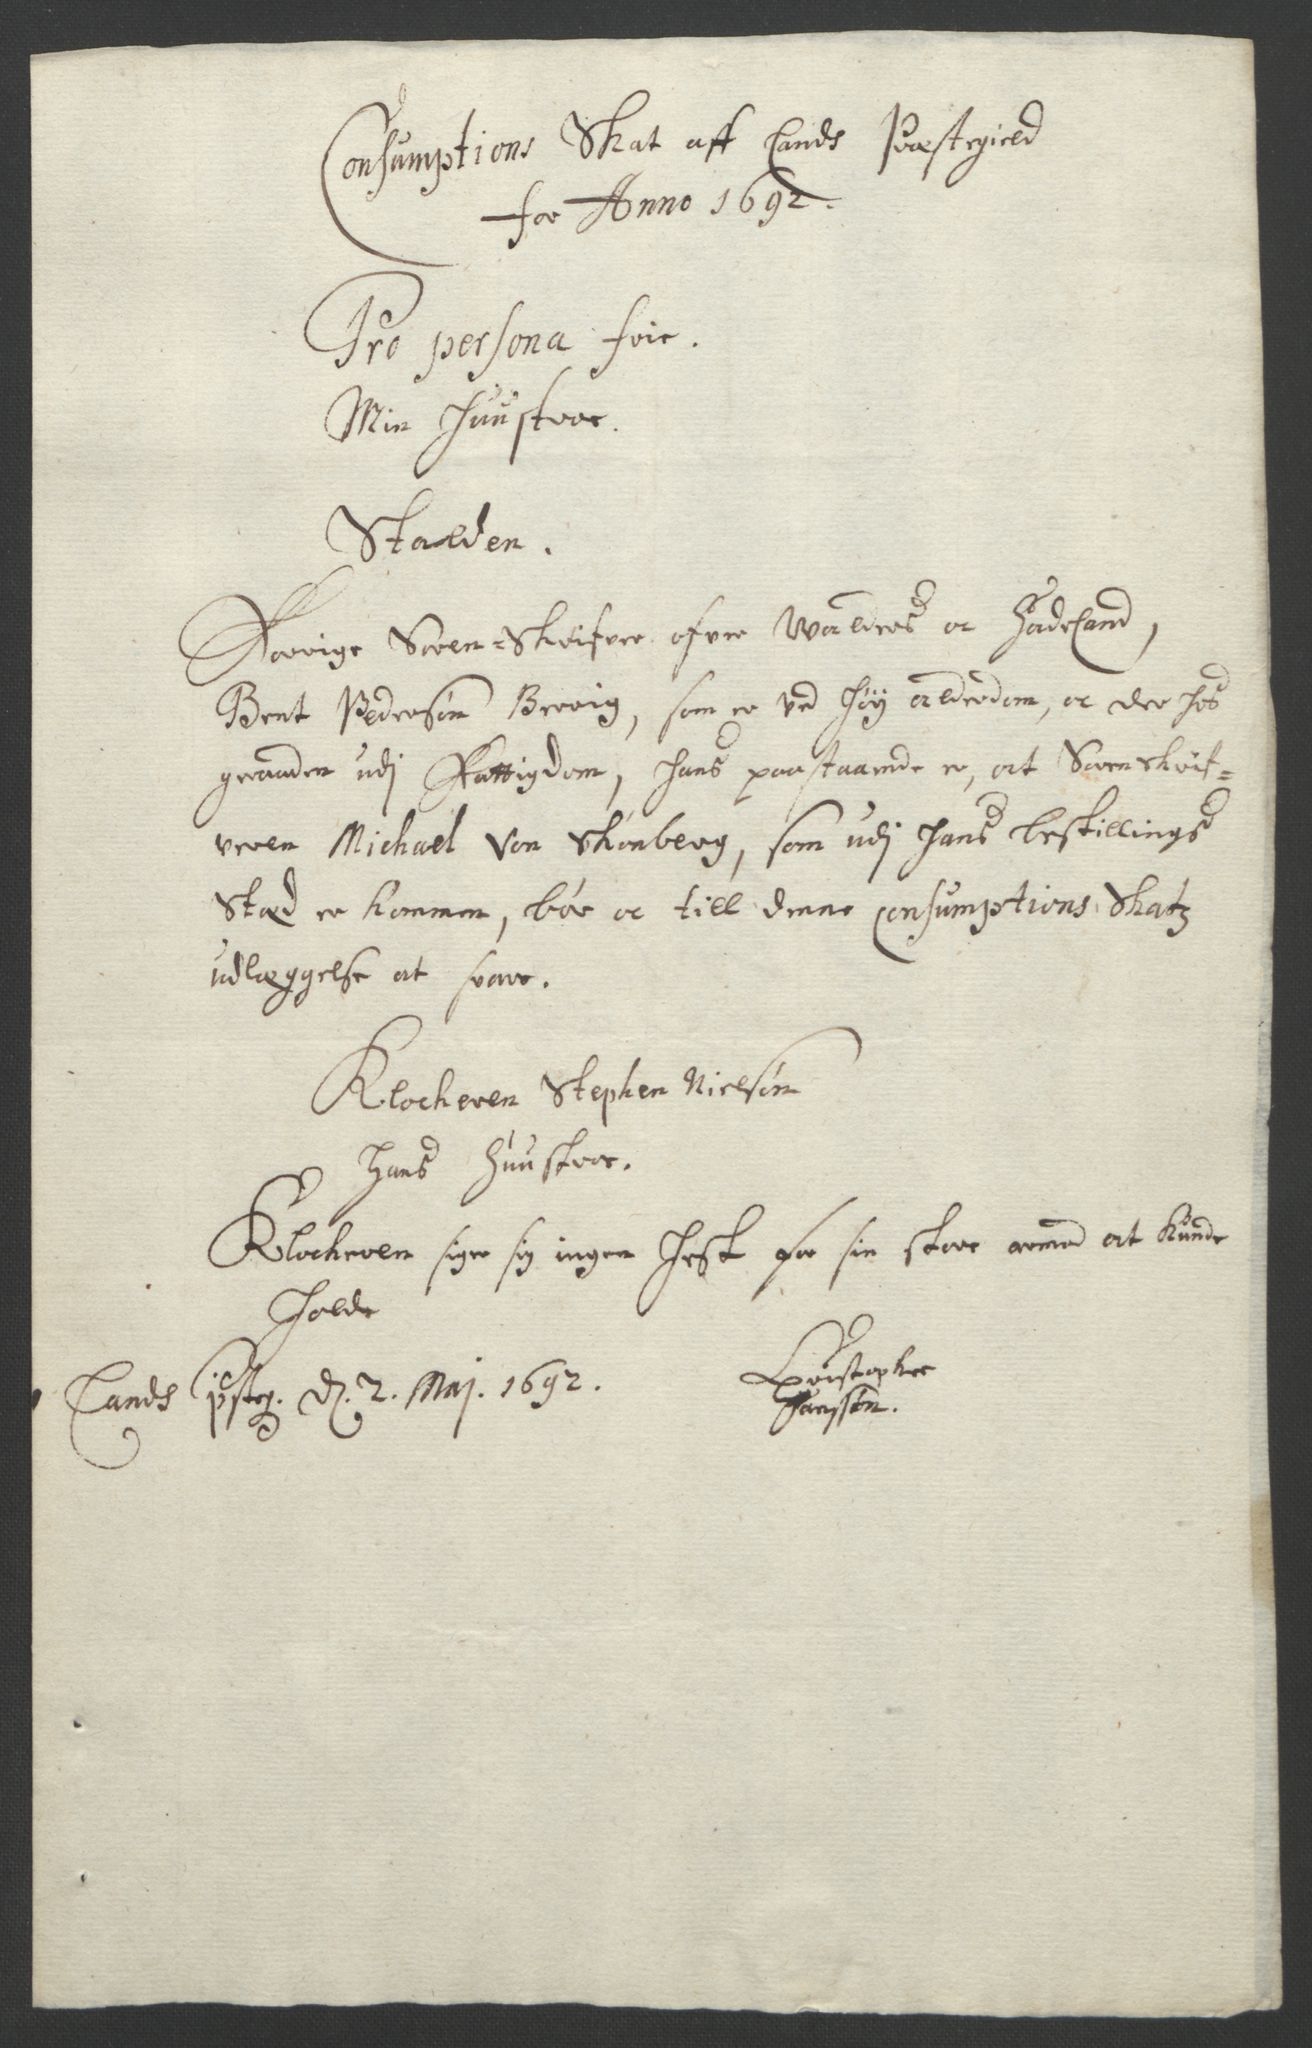 Consumptions Skat aff Lands Præstegield
for Anno 1692.
Pro persona frie.
Min Huustroe.
Stalden.
Forrige Soren-Skrifver ofver Walders oc Hadeland,
Bent Pedersøn Berrig, som er ved høÿ alderdom, oc der hos
geraaden udj Fattigdom, hans paastaaende er, at Sorenskrif=
veren Michael Von Skønberg, som udj hans bestillings
Stæd er kommen, bør oc till denne Consumptions Skatz
udlæggelse at svare.
Klockeren Stephen Nielsøn
Hans Huustroe.
Klockeren siger sig ingen Hest for sin store armod at kunde
holde
Lands pstg. d. 2. Maj. 1692.
Christopher
Hanssøn.